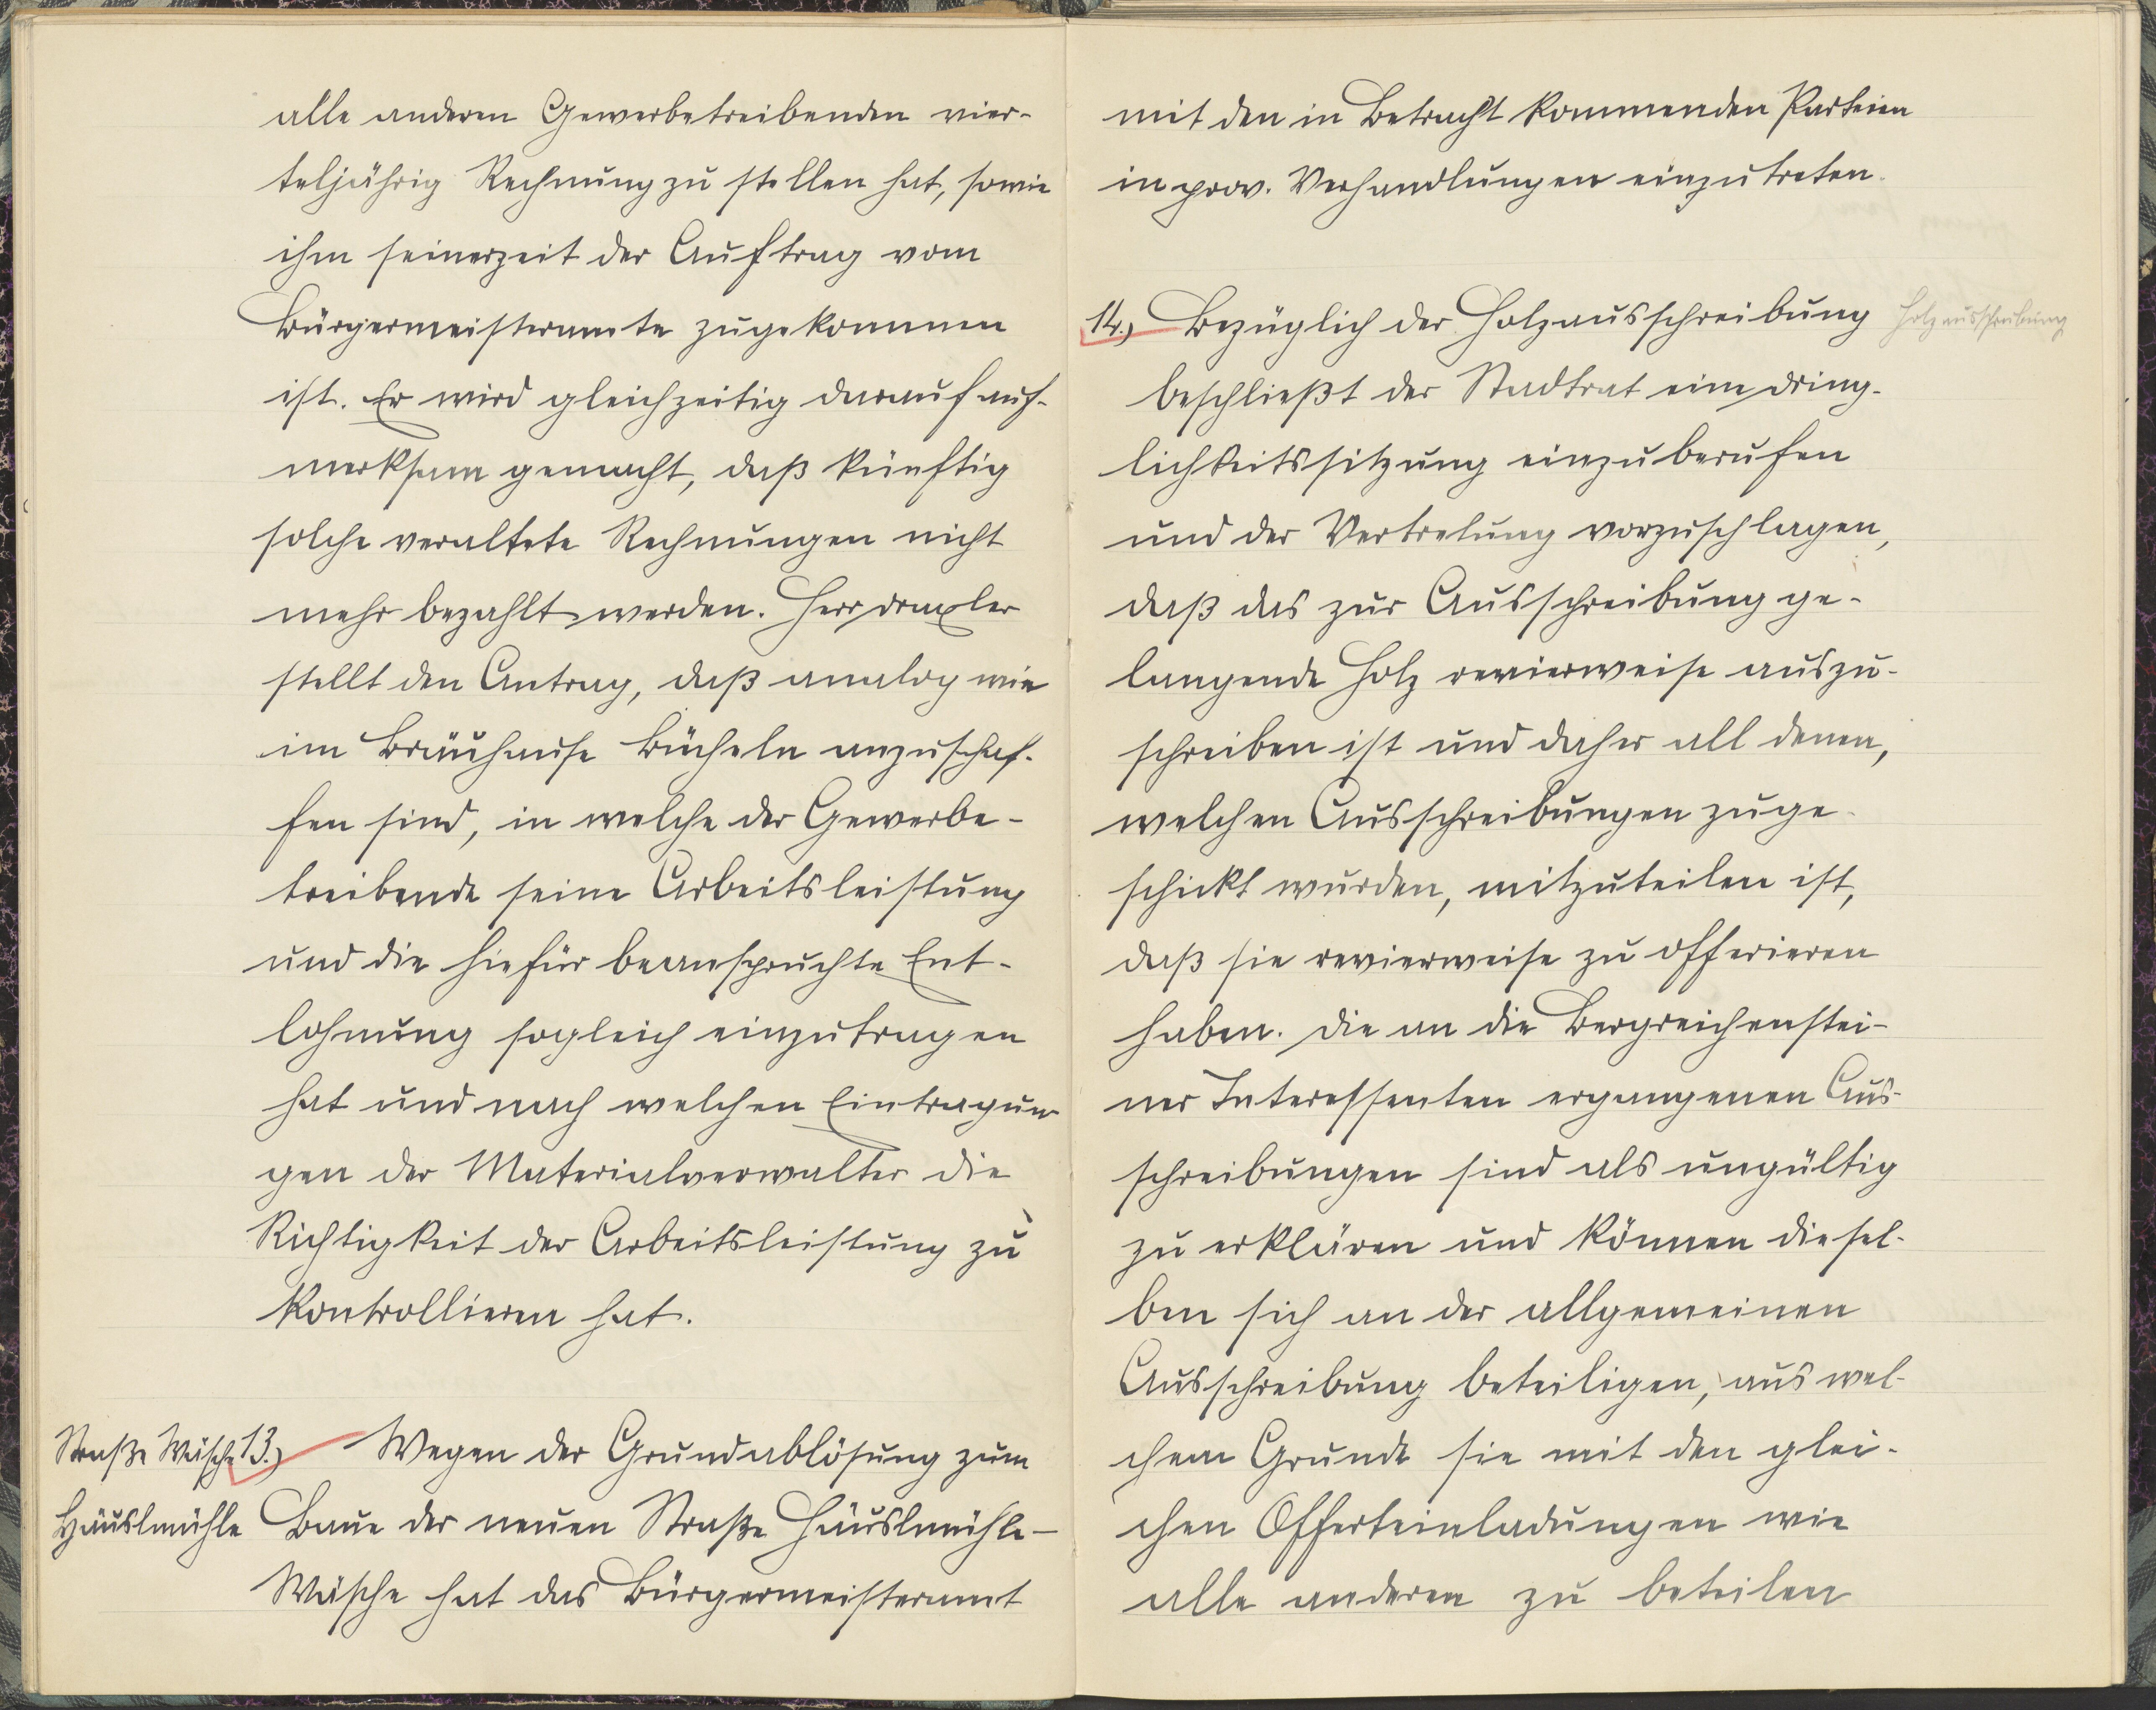 alle anderen Gewerbetreibenden vier-
teljährig Rechnung zu stellen hat, sowie
ihm seinerzeit der Auftrag vom
Bürgermeisteramte zugekommen
ist. Er wird gleichzeitig darauf auf-
merksam gemacht, daß künftig
solche veraltete Rechnungen nicht
mehr bezahlt werden. Herr Draxler
stellt den Antrag, daß analog wie
im Bräuhause Bücheln anzuschaf-
fen sind, in welche der Gewerbe-
treibende seine Arbeitsleistung
und die hiefür beanspruchte Ent-
lohnung sogleich einzutragen
hat und nach welchen Eintragun-
gen der Materialverwalter die
Richtigkeit der Arbeitsleistung zu
kontrollieren hat.
Straße Wäsche
Häuslmühle
13.) Wegen der Grundablösung zum
Baue der neuen Straße Häuslmühle-
Wäsche hat das Bürgermeisteramt
mit den in Betracht kommenden Parteien
in prov. Verhandlungen einzutreten.
14.) Bezüglich der Holzausschreibung
Holzausschreibung
beschließt der Stadtrat eine Dring-
lichkeitssitzung einzuberufen
und der Vertretung vorzuschlagen,
daß das zur Ausschreibung ge-
langende Holz revierweise auszu-
schreiben ist und daher all denen,
welchen Ausschreibungen zuge-
schickt wurden, mitzuteilen ist,
daß sie revierweise zu offerieren
haben. Die an die Bergreichenstei-
ner Interessenten ergangenen Aus-
schreibungen sind als ungültig
zu erklären und können diesel-
ben sich an der allgemeinen
Ausschreibung beteiligen, aus wel-
chem Grunde sie mit den glei-
chen Offerteinladungen wie
alle anderen zu beteilen